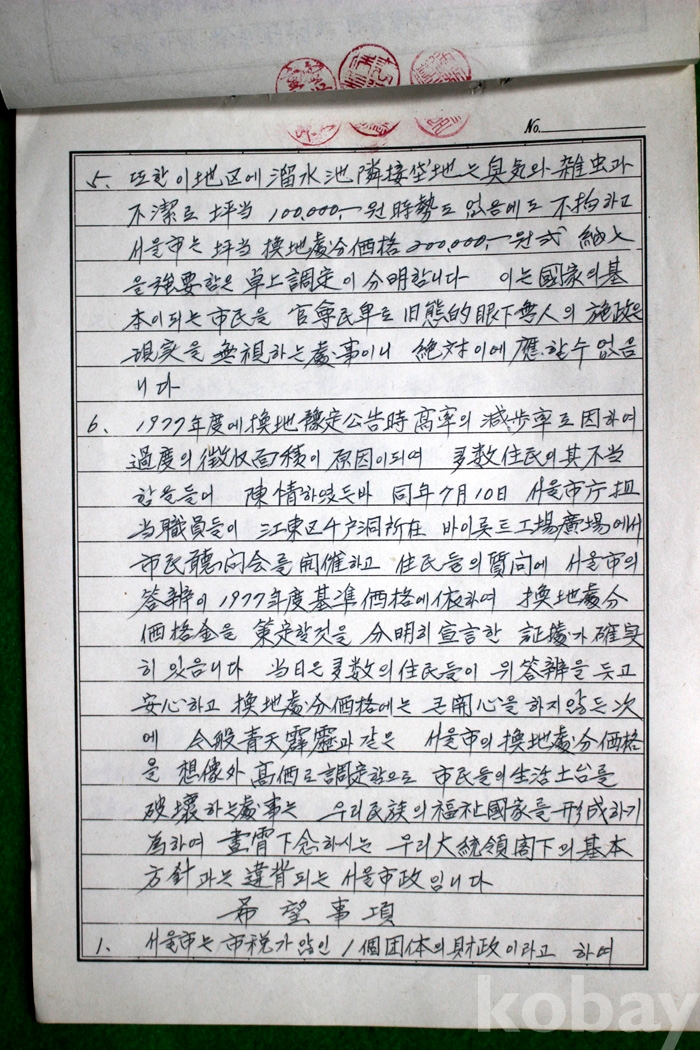 No.
5. 또한 이 地区에 溜水池 隣接垈地는 臭気와 雑虫과
不潔로 坪当 100,000,-원 時勢도 없음에도 不拘하고
서울市는 坪当 換地處分価格 200,000,-원式 納入
을 強要함은 卓上調定이 分明합니다 이는 國家의 基
本이 되는 市民을 官尊民卑로 旧態的 眼下無人의 施政은
現実을 無視하는 處事이니 絶対 이에 應할 수 없음
니다
6. 1977年度에 換地豫定公告時 高率의 減歩率로 因하여
過度의 徴収面積이 原因이 되여 多数住民의 其 不当
함을 들어 陳情하였든바 同年 7月 10日 서울市庁 担
当職員들이 江東区 千戸洞 所在 바이론드工場 廣場에서
市民聽问会를 開催하고 住民들의 質问에 서울市의
答辨이 1977年度 基準価格에 依하여 換地處分
価格金을 策定할 것을 分明히 宣言한 証據가 確実
히 있음니다 当日은 多数의 住民들이 위 答辨을 듯고
安心하고 換地處分価格에는 곤 關心을 하지 않든 次
에 今般 青天霹靂과 같은 서울市의 換地處分価格
을 想像外 高価로 調定함으로 市民들의 生活土台를
破壞하는 處事는 우리 民族의 福祉國家를 形成하기
為하여 晝宵下念하시는 우리 大統領閣下의 基本
方針과는 違背되는 서울市政입니다
希望事項
1. 서울市는 市税가 않인 1個団体의 財政이라고 하여
kobay